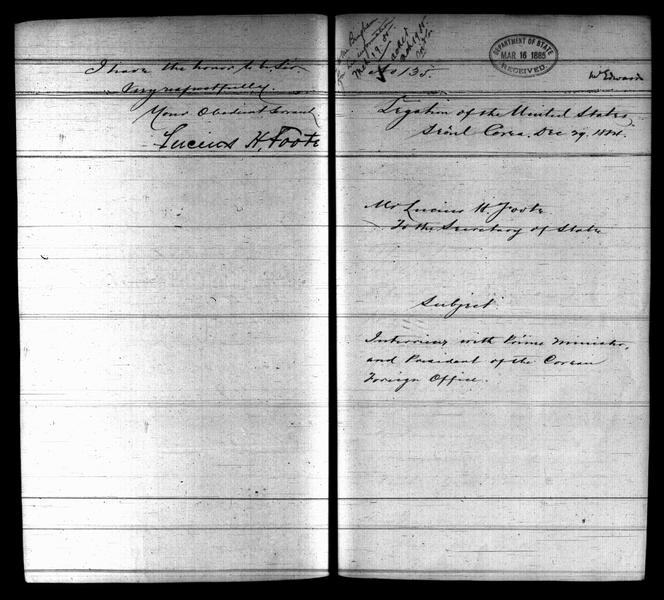 I have the honor to be Sir,
Very respectfully.
Your Obedient Servant
Lucius H. Foote
Mch 19. 85
DEPARTMENT OF STATE
MAR 16 1885
RECEIVED
No 135.
Mr Edwards
Legation of the United States
Seoul Corea. Dec 29. 1884.
Mr Lucius H. Foote
To the Secretary of State
Subject
Interviews with Prime Minister,
and President of the Corean
Foreign Office.